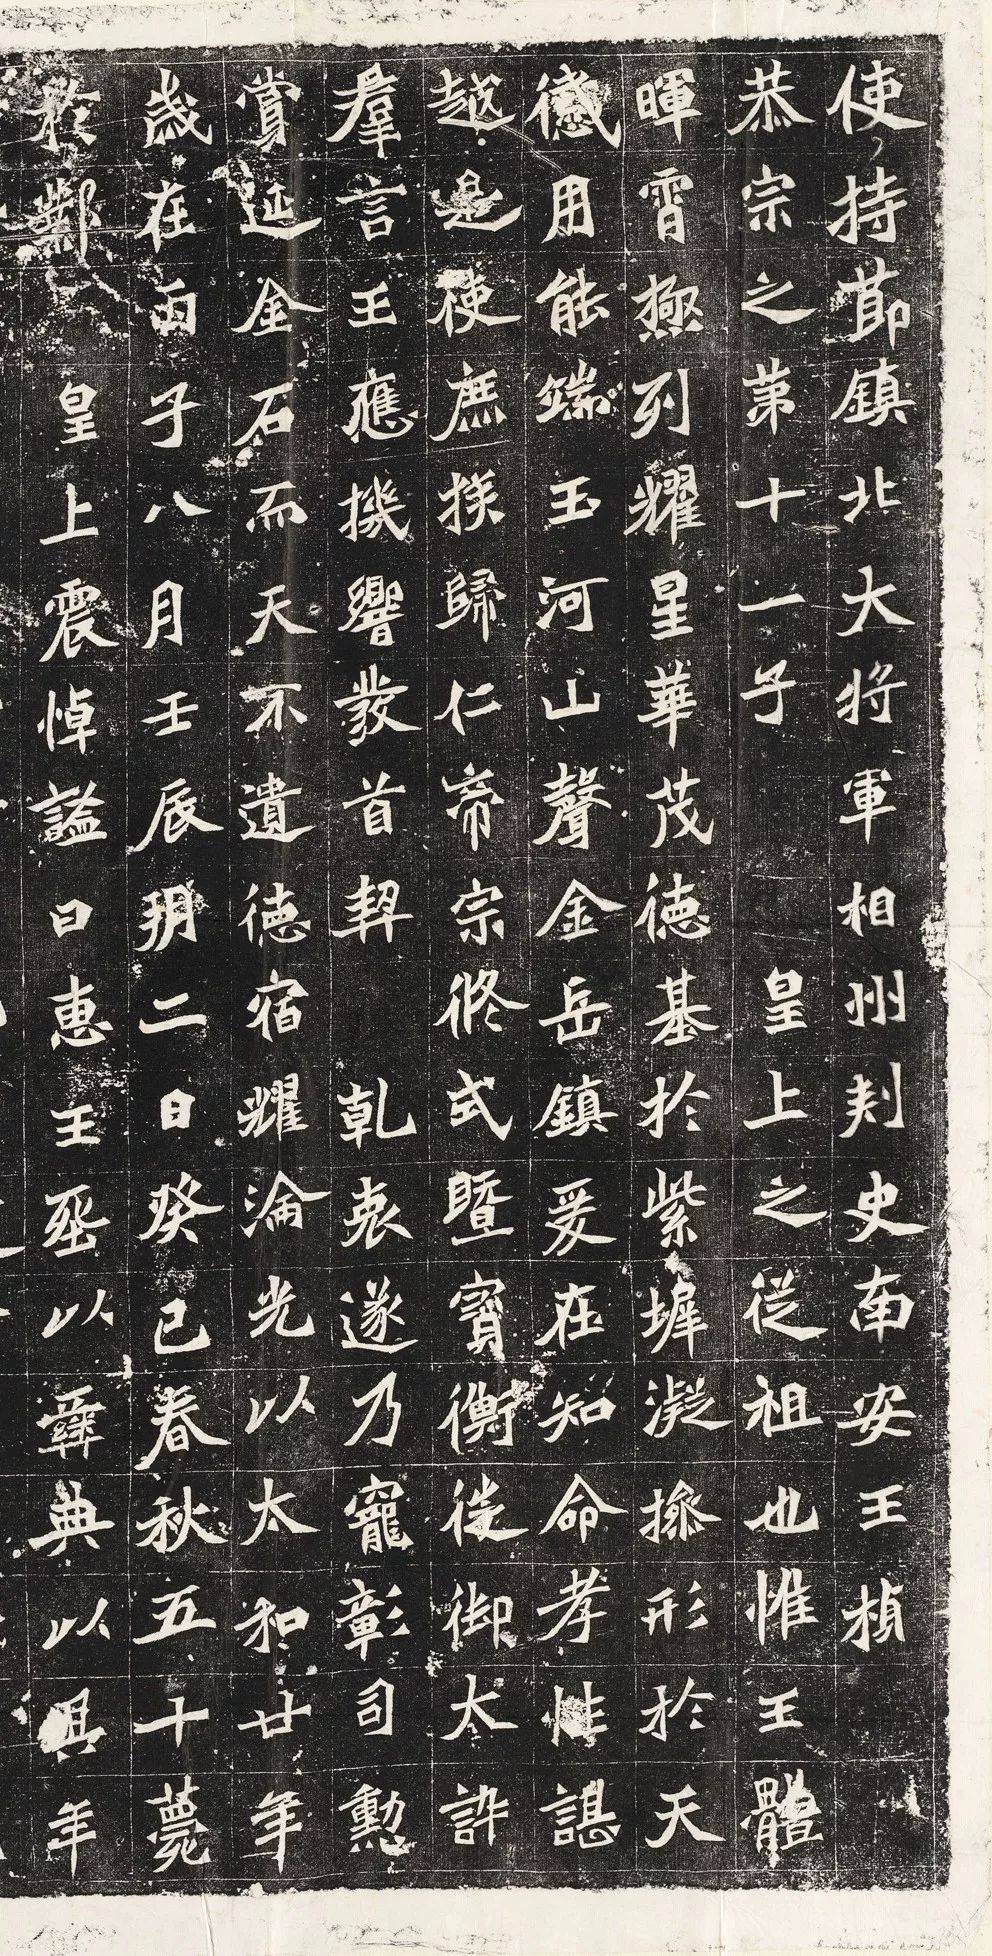 使持節鎮北大將軍相州刺史南安王楨
恭宗之第十一子皇上之從祖也惟王體
暉霄極列耀星華茂德基於紫墀凝操形於天
感用能端玉河山聲金岳鎮爰在知命孝性諶
越是使庶族歸仁帝宗攸式暨寶衡徙御大訓
羣言王應機響發首契乾衷遂乃寵彰司勳
賞延金石而天不遺德宿耀淪光以太和廿年
歲在丙子八月壬辰朔二日癸巳春秋五十薨
於鄴皇上震悼謚曰惠王葬以彝典以其年